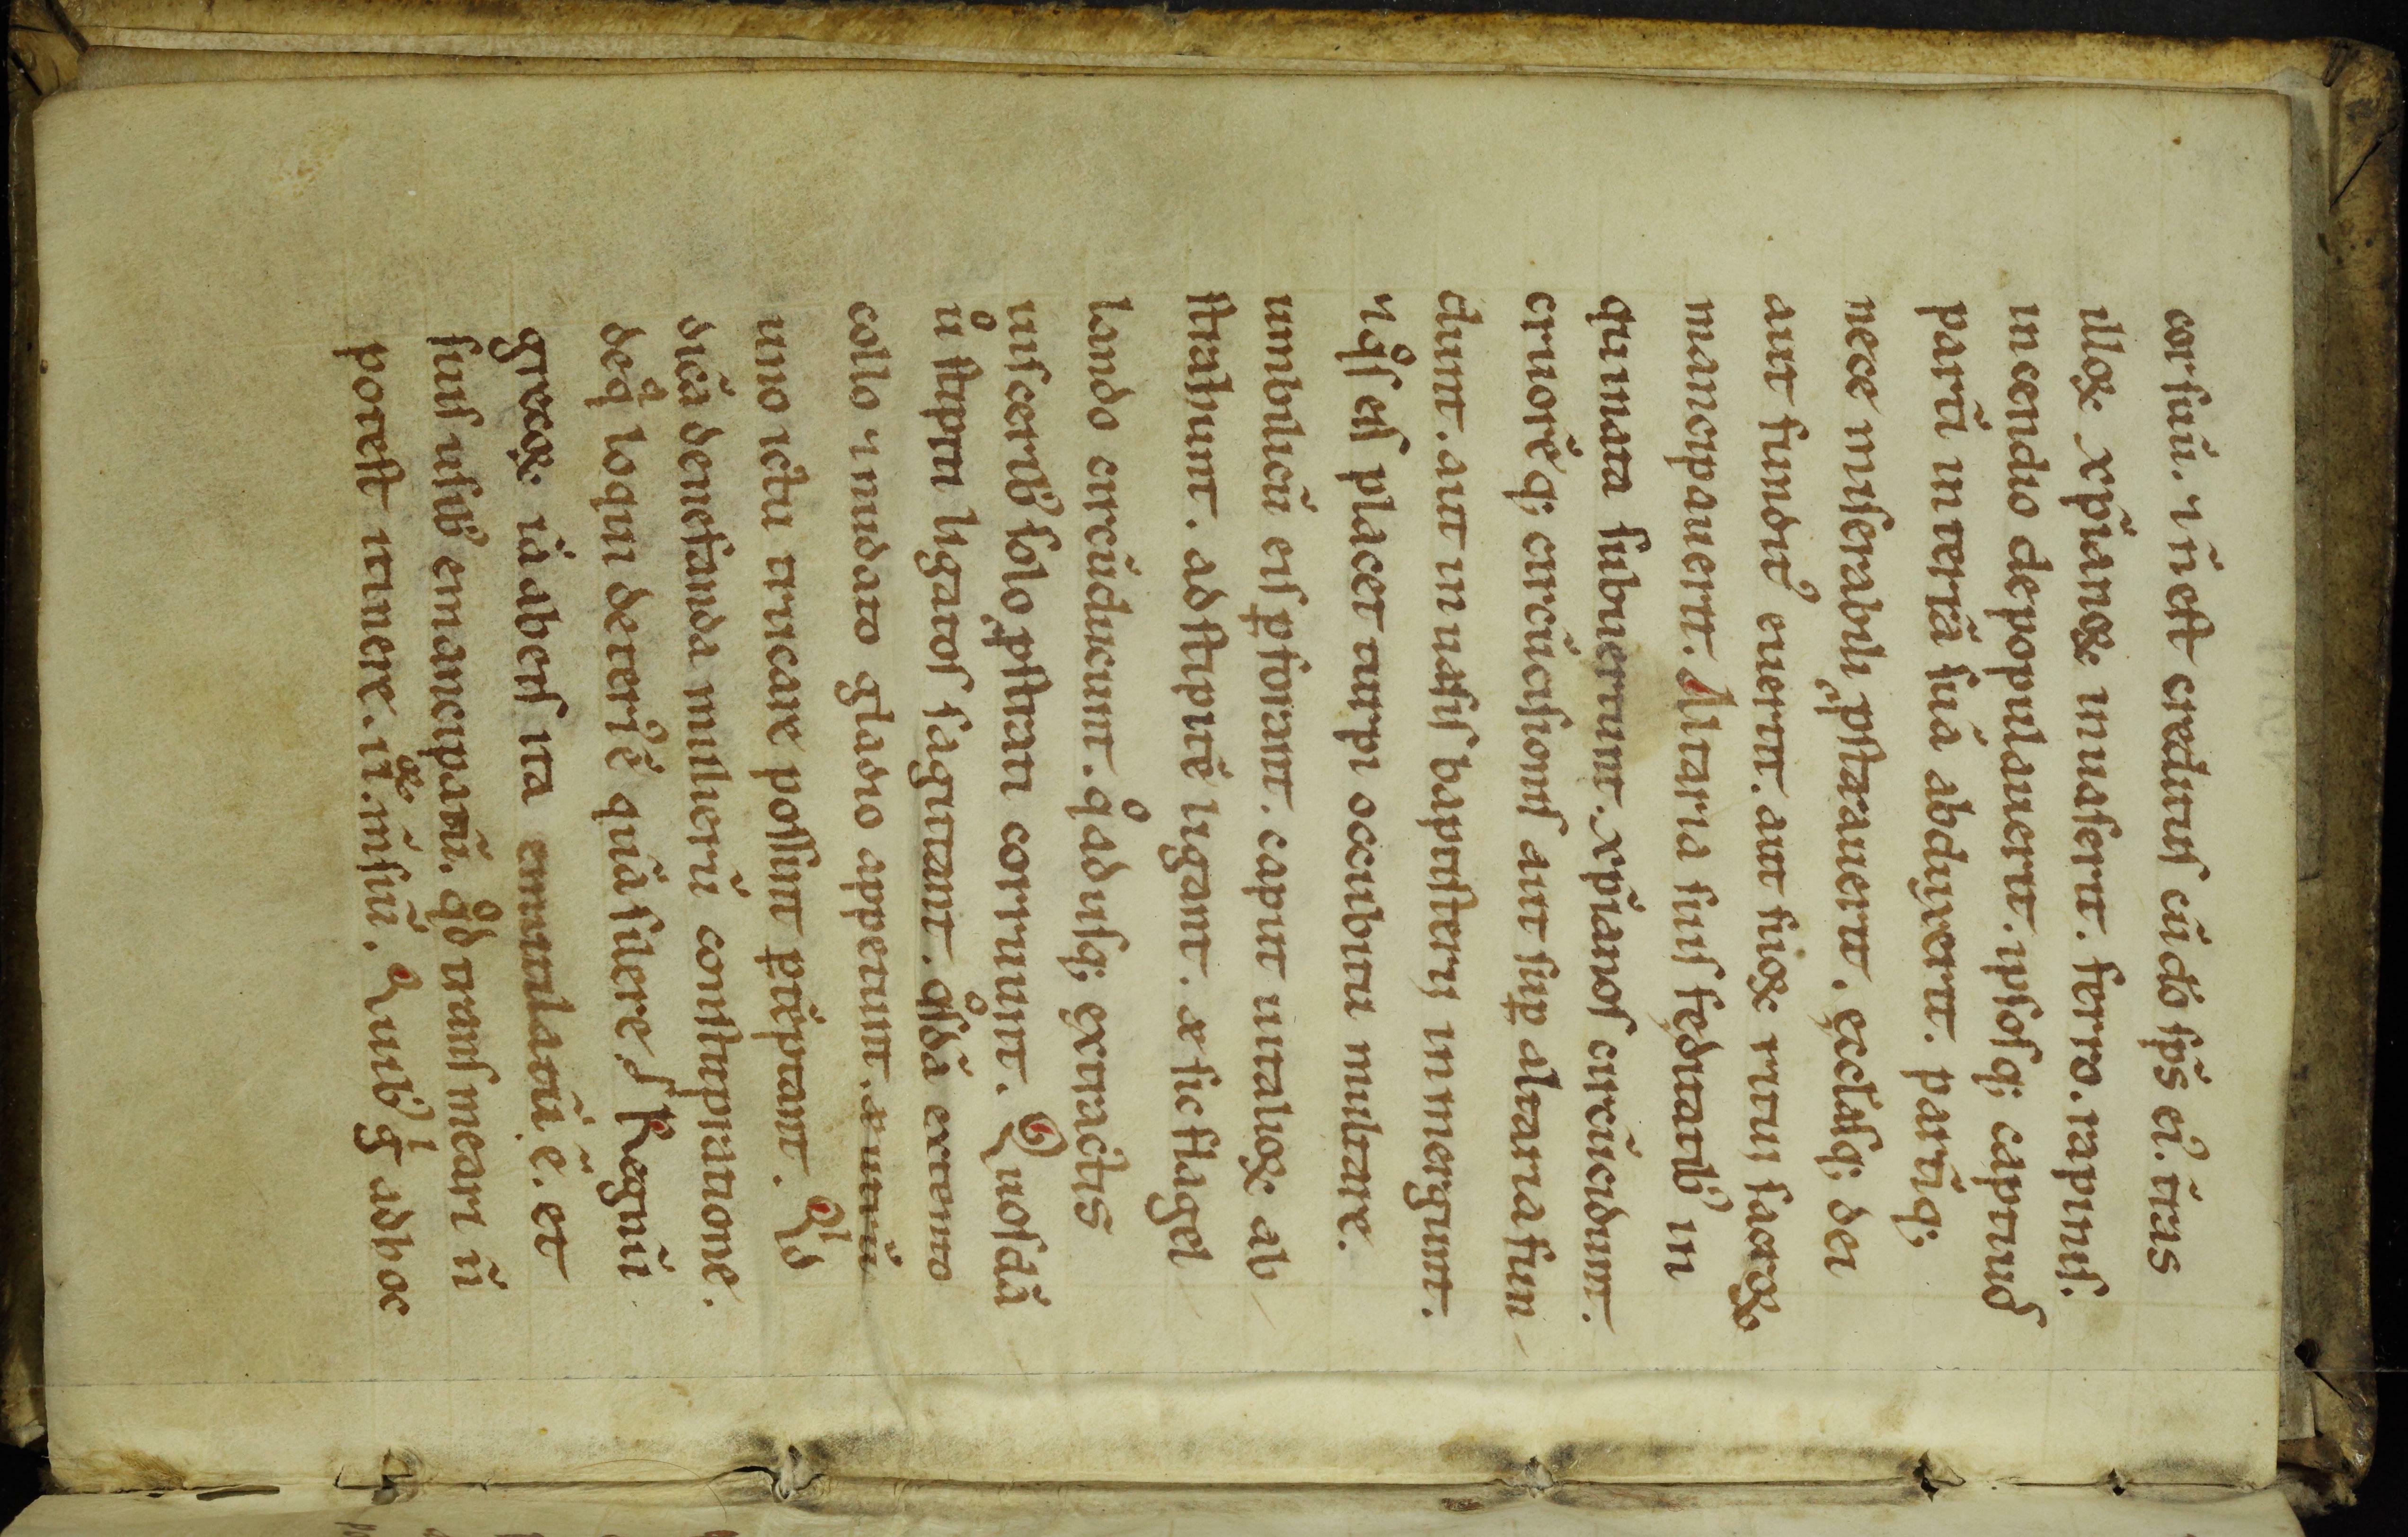 cor suũ. ⁊ ñ est creditus cũ dõ sp̃s ei᾽. t̃ras
illoꝝ xp̃ianoꝝ inuaserт. ferro. rapinis.
incendio depopulauerт. ipsosq; captiuos
partĩ in terrã suã abduxerт. partĩq;
nece miserabili ꝓstrauerт. ęcclãsq; dei
aut fundit᾽ euerтт. aut suoꝝ ritui sacroꝝ
mancipauerт. Altaria suis fęditatib᾽ in
quinata subuertunt. xp̃ianos circũcidunt.
cruorẽq; circũcisionis aut suꝑ altaria fun
dunt. aut in uasis baptisterii inmergunt.
⁊ qͦs eis placet turpi occubitu multare.
umbilicũ eis ꝑforant. caput uitalioꝝ ab
strahunt. ad stipitẽ ligant. & sic flagel
lando circũducunt. qͦadusq; extractis
uiscerib᾽ solo ꝓstrati corruunt. Quosdã
ů stipiti ligatos sagittant. qͦsdã extento
collo ⁊ nudato gladio appetunt. & utrũ
uno ictu truncare possint ptẽptant. Qͥd
dicã de nefanda mulierũ constupratione.
de qͣ loqui deteri᾽ ẽ quã silere. Regnũ
grecoꝝ iã ab eis ita emutilatũ ẽ. et
suis usib᾽ emancipatũ. qͦd transmeari ñ
potest itinere. ii. mensiũ. Quib᾽ gͥ ad hoc